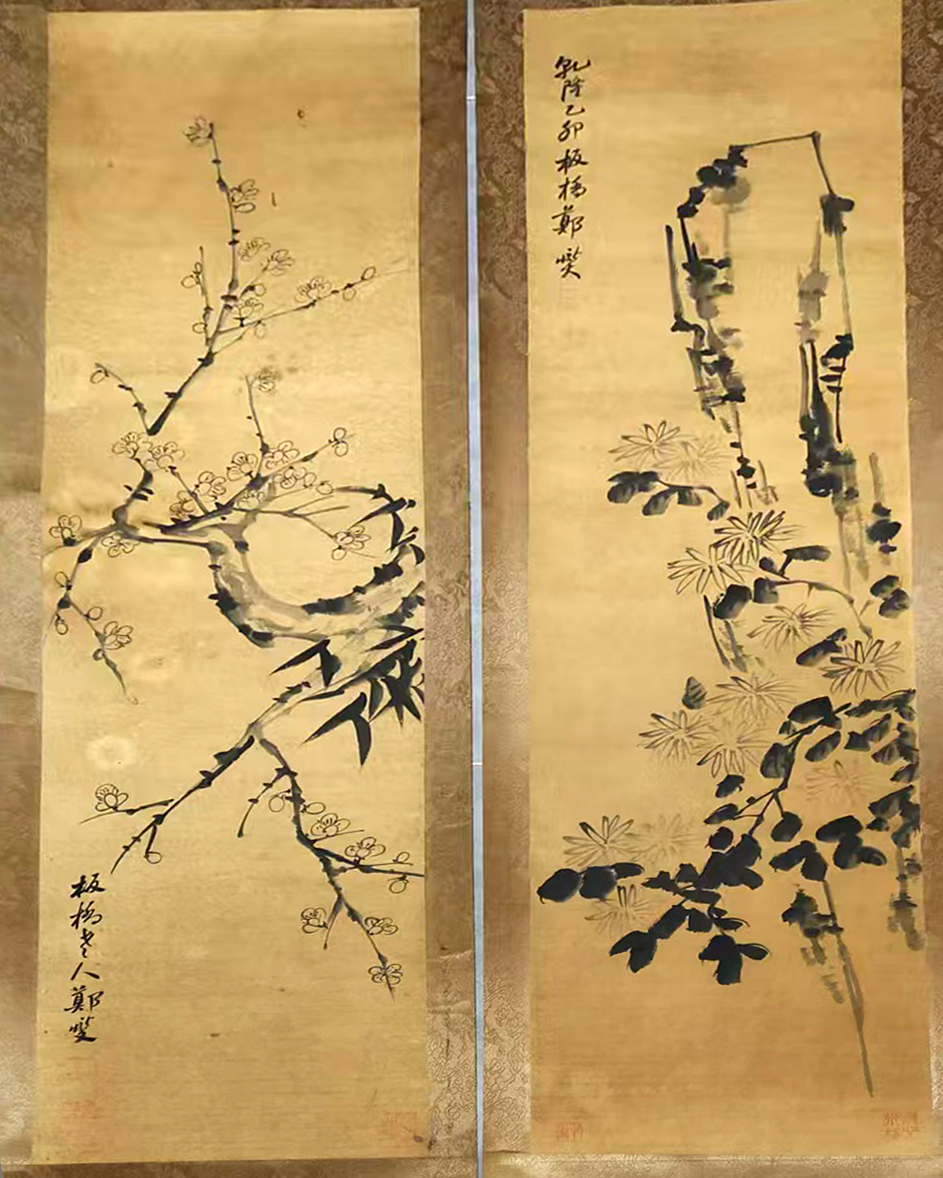 乾隆乙卯板橋鄭燮
板橋老人鄭燮